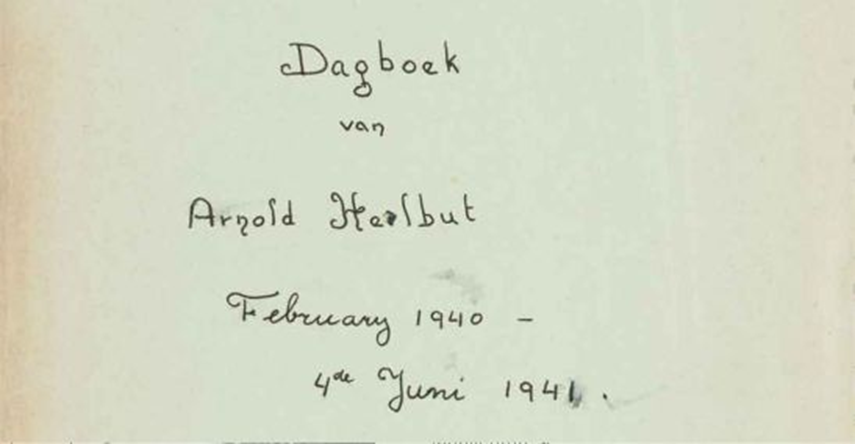 Dagboek
van
Arnold
February 1940 -
4de Juni 1941.